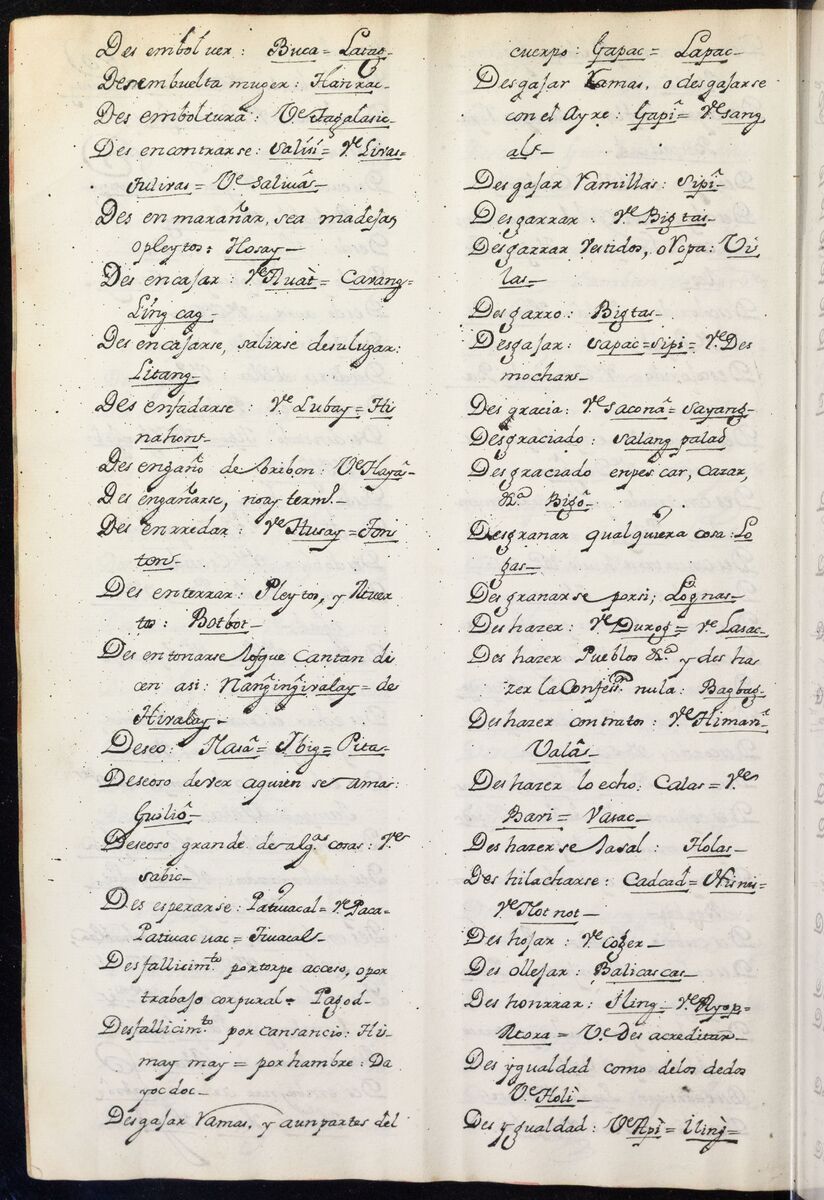 Des embolver: Buca= Latag-
Desembuelta muger: Hanrac-
Des emboltura: Ve. Tagalasic-
Des encontrarse: Salisi= Ve. Livas-
Saliuas-
Des en marañar, sea madejas,
o pleytos: Hosay-
Des encajar: Ve. = Carang-
Ling cag-
Des encajarse, salirse desulugar:
Litang-
Des enfadarse: Ve. Lubay= Hi
nahon-
Des engaño de bribon: Ve. Haya-
Des engañarse, noay termo.-
Des enrredar: Ve. Husay=
Des enterrar: Pleytos, y Muer
tos: Botbot-
Des entonarse losque cantan di
cen asi: = de
Hiralay-
Deseo: Nasâ= Ibig= Pita-
Deseoso dever aquien se ama:
Guiliô-
Deseoso grande de algs. cosas: Ve.
sabic-
Des esperarse: Patiuacal= Ve. Paca-
Patiuac uac= Tiuacal-
Desfallicimto. portorpe acceso, opor
trabajo corpural= Pagod-
Desfallicimto. por cansancio: Hi
may may= por hambre: Da
yocdoc-
Desgajar Ramas, y aunpartes del
cuerpo: Gapac= Lapac-
Desgajar Ramas, o desgajarse
con el Ayre: Gapî= Ve. sang
al-
Des gajar Ramillas: Sipî-
Des garrar: Ve. Bigtas-
Desgarrar Vestidos, o Ropa: Vi
las-
Des garro: Bigtas-
Desgajar: sapac=sipi= Ve. Des
mochar-
Des gracia: Ve. Saconâ= Sayang-
Desgraciado: salang palad
Des graciado enpescar, cazar,
&a. Bigô-
Desgranar qualquiera cosa: Lo
gas-
Des granarse porsi; Lognas-
Des hazer: Ve. Durog= Ve. Lasac-
Des hazer Pueblos &a. y des ha
zer la Confesn. nula: Bagbag-
Deshazer contratos: Ve.
Valâ-
Des hazer loecho: Calas= Ve.
Bavi= Vasac-
Des hazerse lasal: Holas-
Des hilacharse: Cadcad= Nisnis=
Ve. Notnot-
Des hojar: Ve. coger-
Des ollejar: Balicascas-
Des honrrar: Iling= Ve. Ayop=
= Ve. Des acreditar-
Des ygualdad como delos dedos
Ve. Holi-
Des ygualdad: Ve. Apì= Iling=